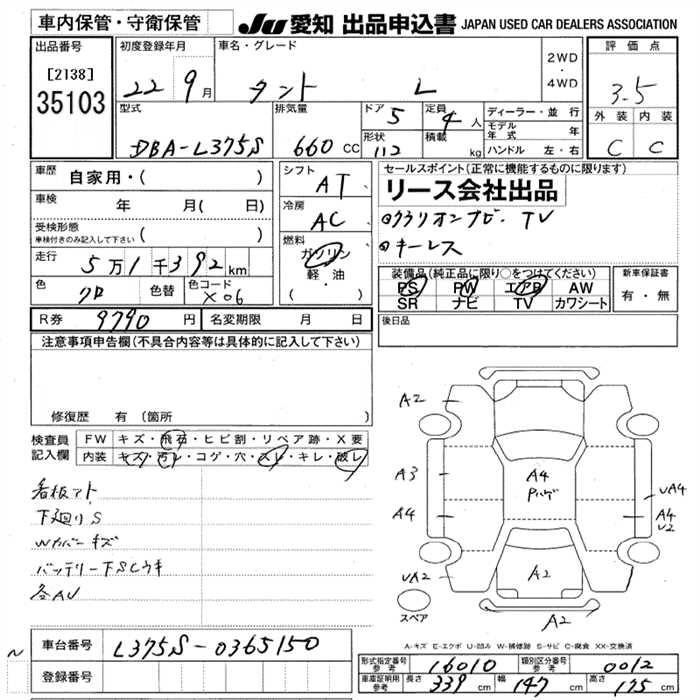 車内保管・守衛保管
JU 愛知 出品申込書 JAPAN USED CAR DEALERS ASSOCIATION
出品番号
[2138]
35103
初度登録年月
22 9月
車名・グレード
タント L
2WD
・
4WD
評価点
3.5
外装 内装
C C
型式
DBA-L375S
排気量
660 CC
ドア 5
形状 112
定員 4 人
積載 kg
ディーラー・並行
モデル年式 年
ハンドル 左・右
車歴 自家用・( )
車検 年 月( 日)
受検形態
車検付きのみ記入して下さい ( )
走行 5万1千392km
色 クロ 色替 色コード X06
シフト AT
冷房 AC
燃料 ガソリン
軽・油
( ・ )
セールスポイント(正常に機能するものに限ります)
リース会社出品
クラリオンナビ・TV
キーレス
装備品(純正品に限り○をつけてください)
PS PW エアB AW
SR ナビ TV カワシート
新車保証書
有・無
後日品
R券 9790円 名変期限 月 日
注意事項申告欄(不具合内容等は具体的に記入して下さい)
修復歴 有(箇所
検査員記入欄
FW キズ・飛石・ヒビ割・リペア跡・X要
内装 キズ・汚レ・コゲ・穴・スレ・キレ・破レ
看板アト
下廻りS
Wカバーキズ
バッテリー下SCウキ
各AU
A2
A3
A4
UA2
A4
Pハゲ
A2
A2
UA4
A4
U2
スペア
A-キズ E-エクボ U-凹み W-補修跡 S-サビ C-腐食 XX-交換済
車台番号 L375S-0365150
登録番号
形式指定番号 参考 16010 類別区分番号 参考 0012
車庫証明用 参考 長さ 339cm 幅 147cm 高さ 175cm